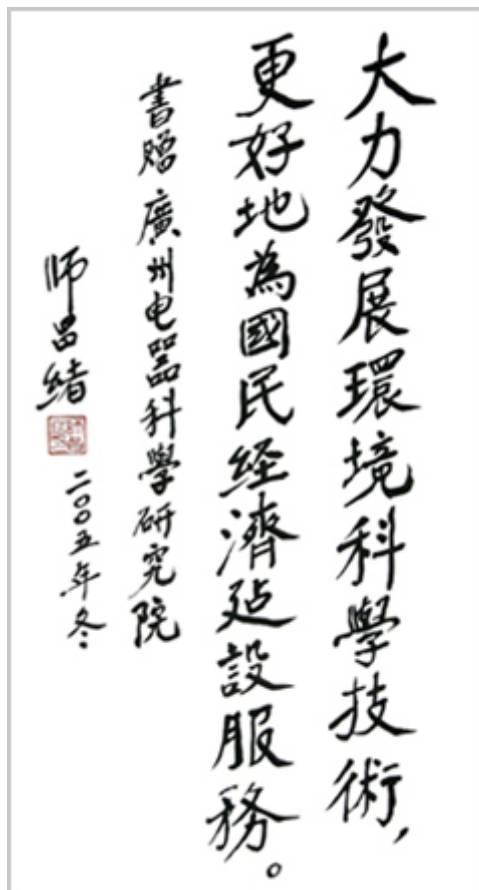 大力發展環境科學技術，
更好地為國民经濟建設服務。
書贈廣州电器科學研究院
师昌绪
二〇〇五年冬